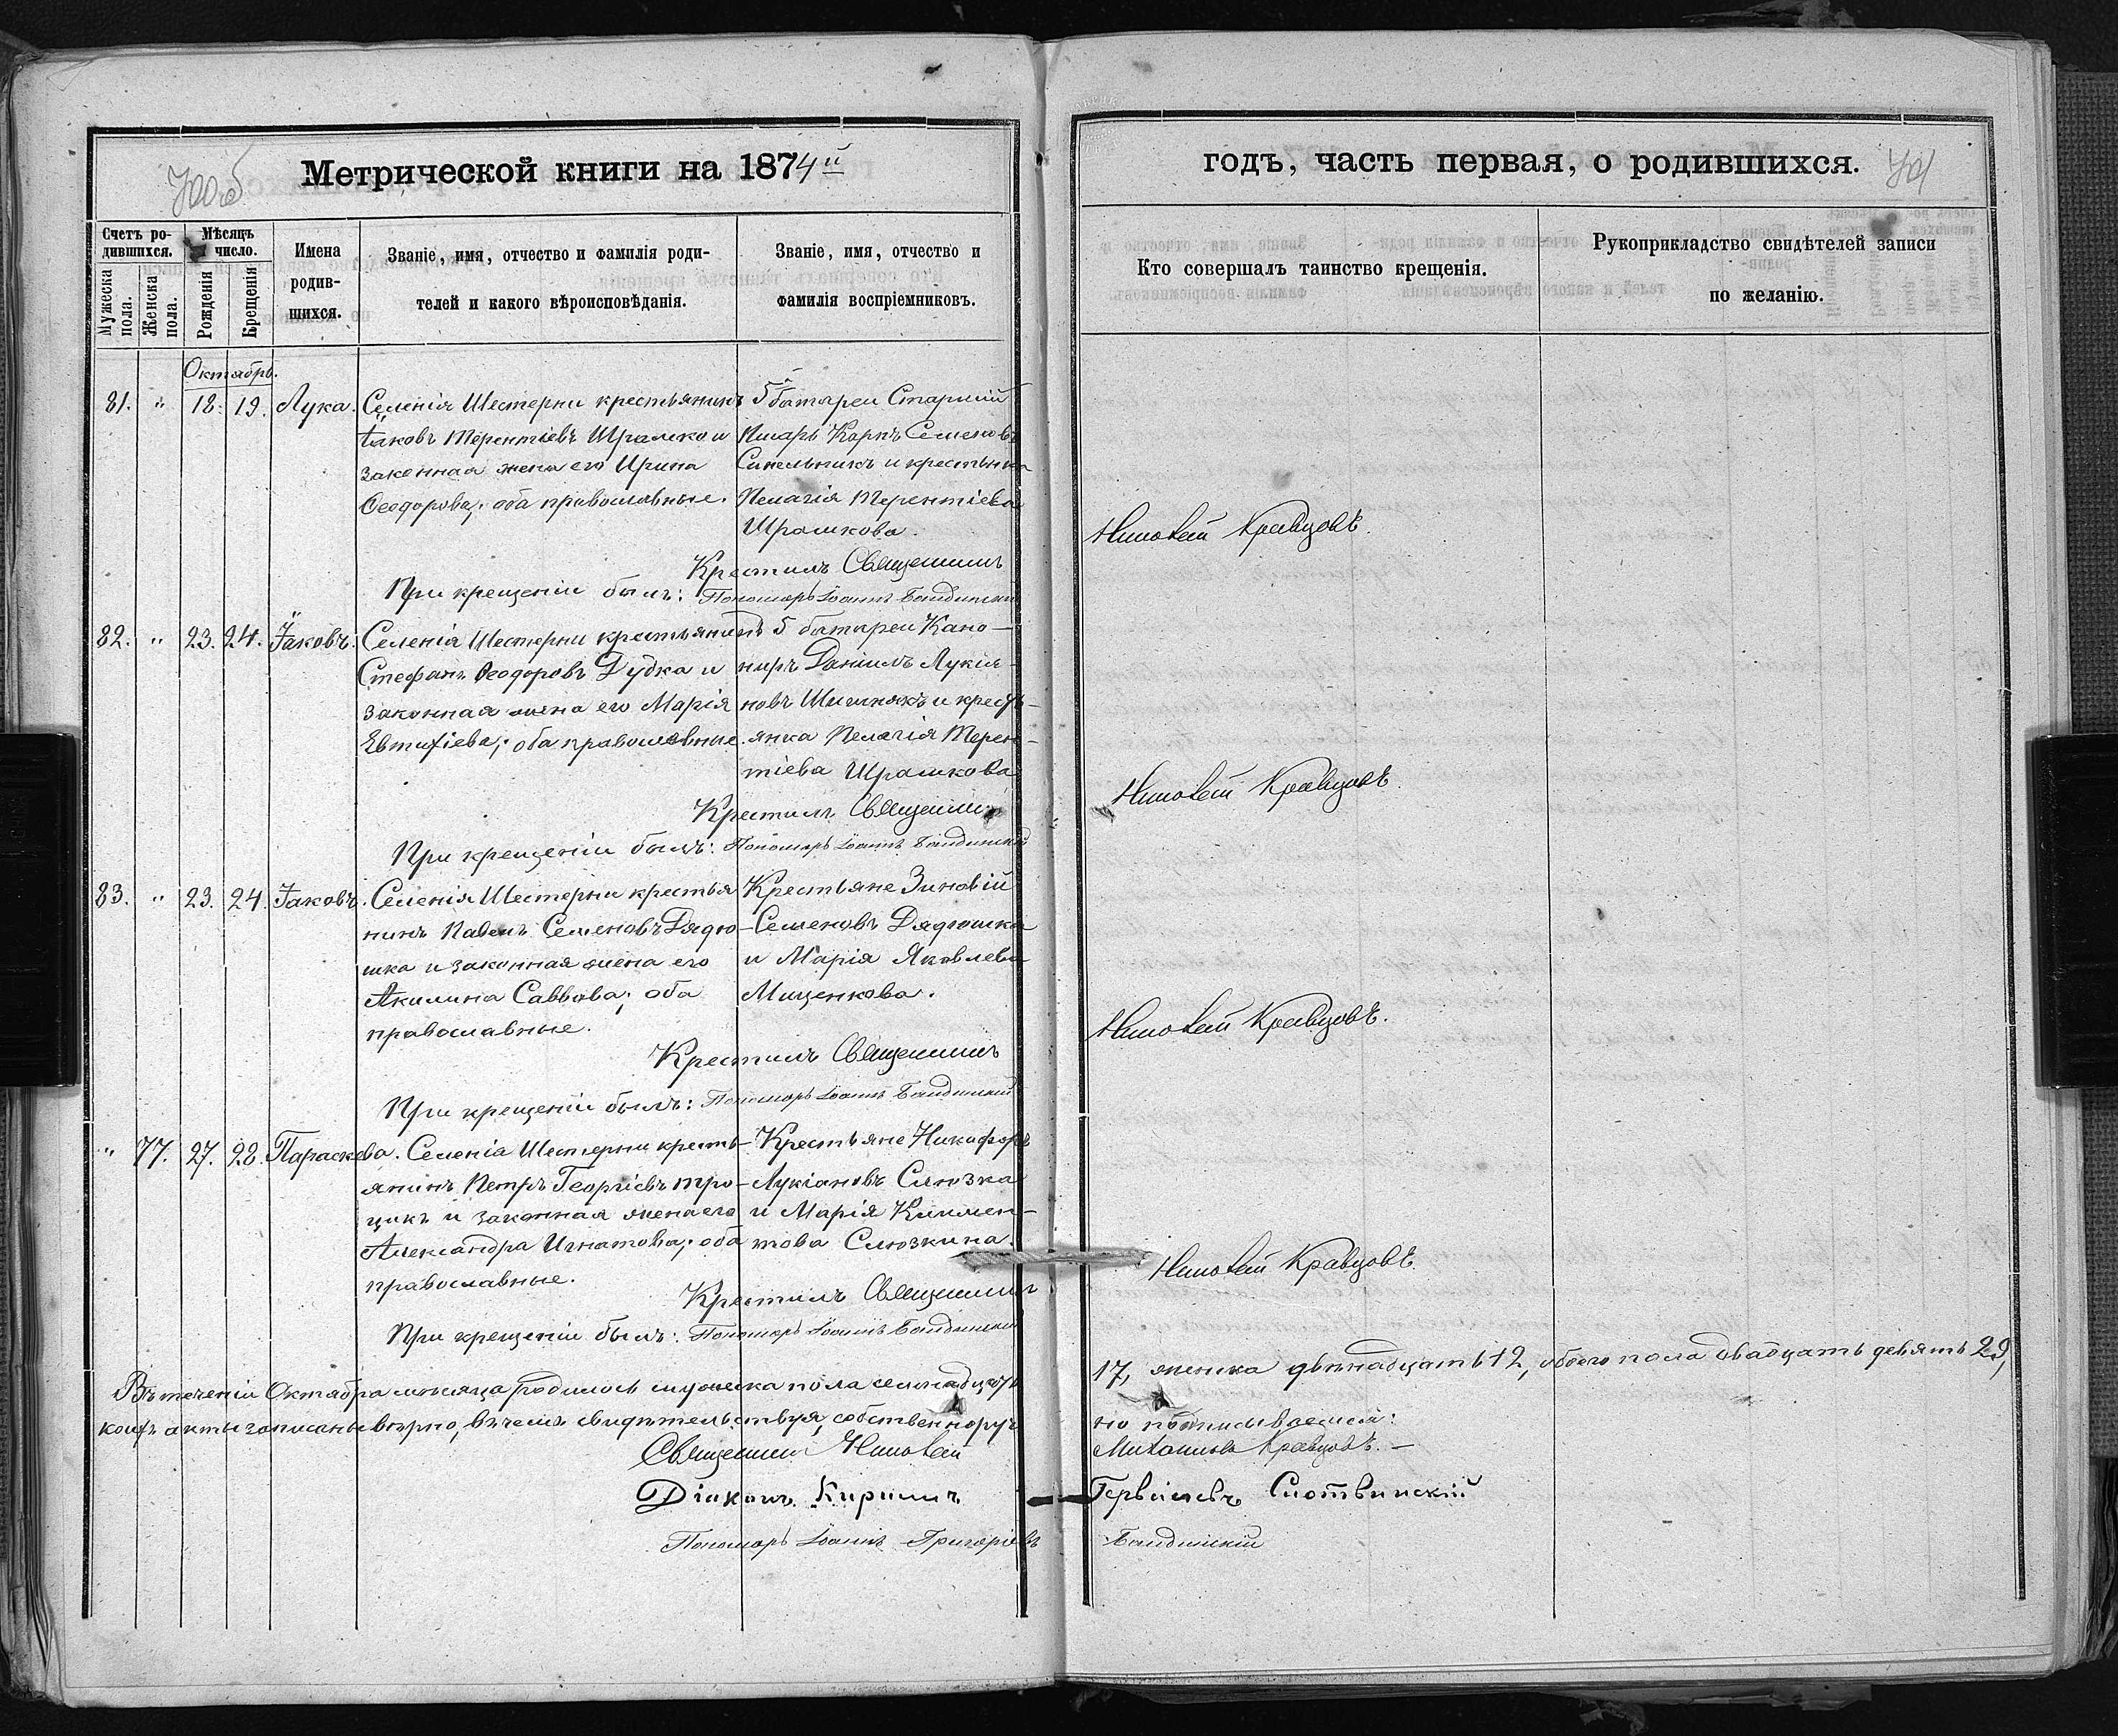 700б
Метрической книги на 1874й
Счетъ ро-
дившихся.
Мѣсяцъ
и число.
Мужеска пола.
Женска пола.
Рожденія
Крещенія
Имена
родив-
шихся.
Званіе, имя, отчество и фамилія роди-
телей и какого вѣроисповѣданія.
Званіе, имя, отчество и
фамилія воспріемниковъ.
Октябрь.
81. " 18. 19. Лука.
Селенія Шестерни крестьянинъ
Іаковъ Терентіевъ Шрамко и
законная жена его Ирина
Ѳеодорова; оба православные.
5й батареи Старший
Писарь Карпъ Семеновъ
Синельникъ и крестьянка
Пелагія Терентіева
Шрамкова.
Крестилъ Священникъ
При крещеніи былъ: Пономарь Іоаннъ
82. " 23. 24. Іаковъ.
Селенія Шестерни крестьянинъ
Стефанъ Ѳеодоровъ Дудка и
законная жена его Марія
Евтихіева; оба православные.
5 батареи Кано-
ниръ Даніилъ Лукія-
новъ и кресть-
янка Пелагія Терен-
тіева Шрамкова
Крестилъ Священникъ
При крещеніи былъ: Пономарь Іоаннъ
83. " 23. 24. Іаковъ.
Селенія Шестерни крестья
нинъ Павелъ Семеновъ Дядю-
шка и законная жена его
Акилина Саввова; оба
православные.
Крестьяне Зиновій
Семеновъ Дядюшка
и Марія Яковлева
Мищенкова.
Крестилъ Священникъ
При крещеніи былъ: Пономарь Іоаннъ
" 77. 27. 28. Параскева.
Селенія Шестерни кресть-
янинъ Петръ Георгіевъ Тро-
цикъ и законная жена его
Александра Игнатова; оба
православные.
Крестьяне Никифоръ
Лукіановъ Слюзка
и Марія Климен-
това Слюзкина.
Крестилъ Священникъ
При крещеніи былъ: Пономарь Іоаннъ
Въ теченіи Октября мѣсяца родилось мужеска пола семнадцать
коихъ акты записаны вѣрно, въ чемъ свидѣтельствуя, собственноруч
Священникъ
Діаконъ Кириллъ
Пономарь Іоаннъ Григоріевъ
годъ, часть первая, о родившихся.
701
Кто совершалъ таинство крещенія.
Рукоприкладство свидѣтелей записи
по желанію.
Кравцовъ.
Кравцовъ.
Кравцовъ.
Кравцовъ.
17, женска двѣнадцать 12, обоего пола двадцать девять 29,
но подписываемся:
Михаиловъ Кравцовъ. —